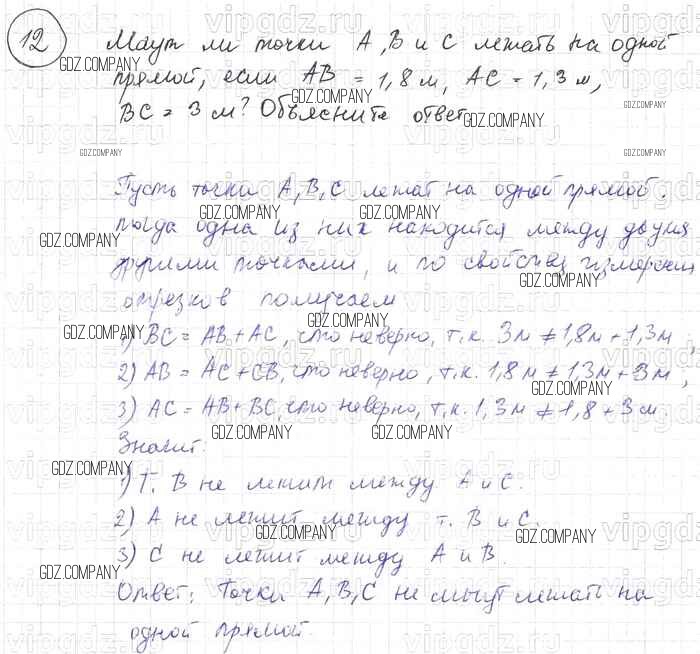 12
Могут ли точки A, B и C лежать на одной
прямой, если AB = 1,8 м, AC = 1,3 м,
BC = 3 м? Объясните ответ
Пусть точки A, B, C лежат на одной прямой.
тогда одна из них находится между двумя
другими точками, и по свойству измерения
отрезков получаем
1) BC = AB + AC, что неверно, т.к. 3м ≠ 1,8м + 1,3м,
2) AB = AC + CB, что неверно, т.к. 1,8м ≠ 1,3м + 3м,
3) AC = AB + BC, что неверно, т.к. 1,3м ≠ 1,8 + 3м.
Значит:
1) т. B не лежит между A и C.
2) A не лежит между т. B и C.
3) C не лежит между A и B.
Ответ: Точки A, B, C не могут лежать на
одной прямой.
GDZ.COMPANY
vipgdz.ru